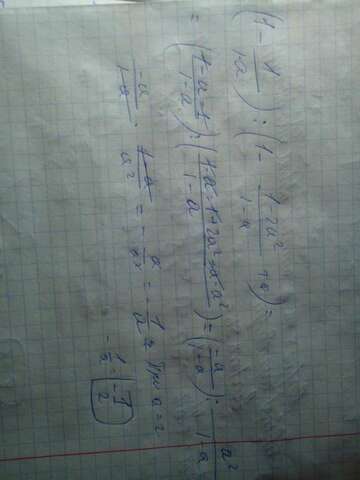 (1 - 1/1-a) : (1 - 1-2a²/1-a + a) =
= (1-a-1/1-a) : (1-a-1+2a²+a-a²/1-a) = (-a/1-a) : a²/1-a
-a/1-a · 1-a/a² = -a/a² = -1/a при a=2
-1/a = -1/2